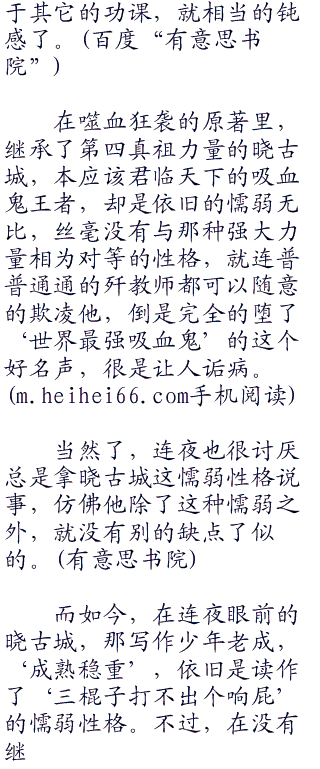 于其它的功课，就相当的钝
感了。(百度“有意思书
院”)
在噬血狂袭的原著里，
继承了第四真祖力量的晓古
城，本应该君临天下的吸血
鬼王者，却是依旧的懦弱无
比，丝毫没有与那种强大力
量相为对等的性格，就连普
普通通的歼教师都可以随意
的欺凌他，倒是完全的堕了
‘世界最强吸血鬼’的这个
好名声，很是让人诟病。
(m.heihei66.com手机阅读)
当然了，连夜也很讨厌
总是拿晓古城这懦弱性格说
事，仿佛他除了这种懦弱之
外，就没有别的缺点了似
的。(有意思书院)
而如今，在连夜眼前的
晓古城，那写作少年老成，
‘成熟稳重’，依旧是读作
了‘三棍子打不出个响屁’
的懦弱性格。不过，在没有
继